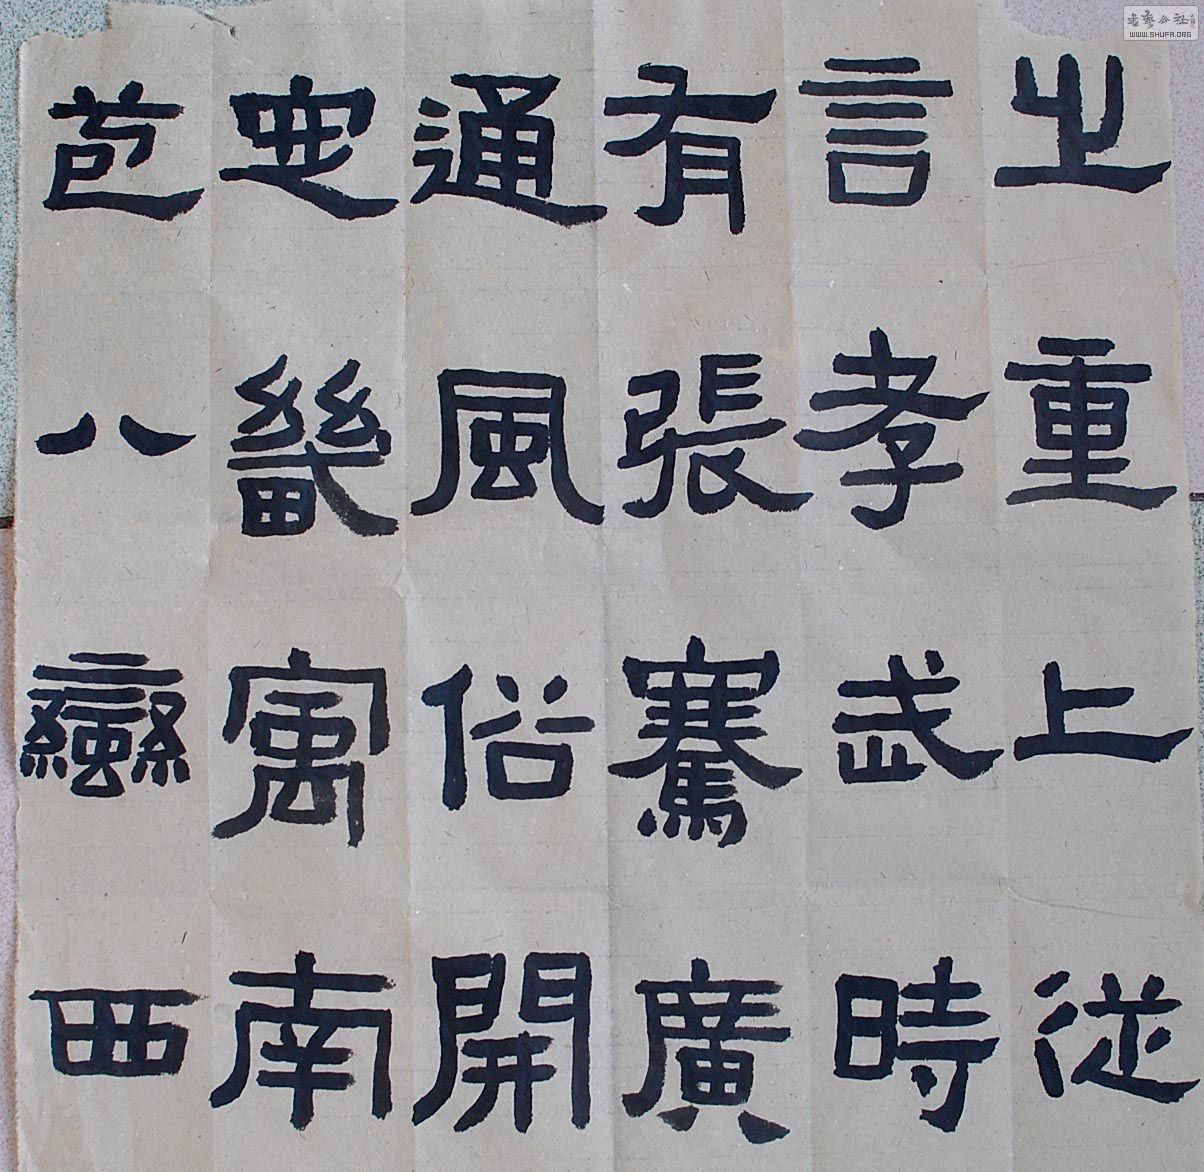 之重上從
言孝武時
有張騫廣
通風俗開
定畿寓南
苞八蠻西
書藝公社
WWW.SHUFA.ORG